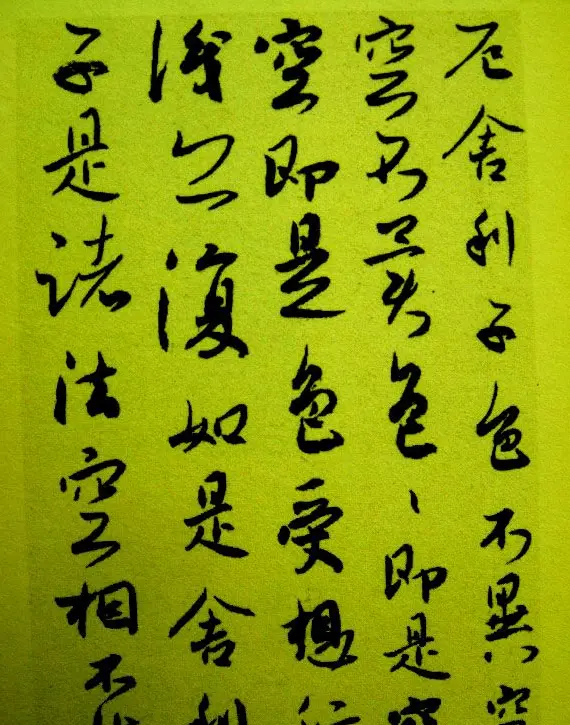 厄舍利子色不異空
空不異色〻即是空
空即是色受想行
識亦復如是舍利
子是諸法空相不